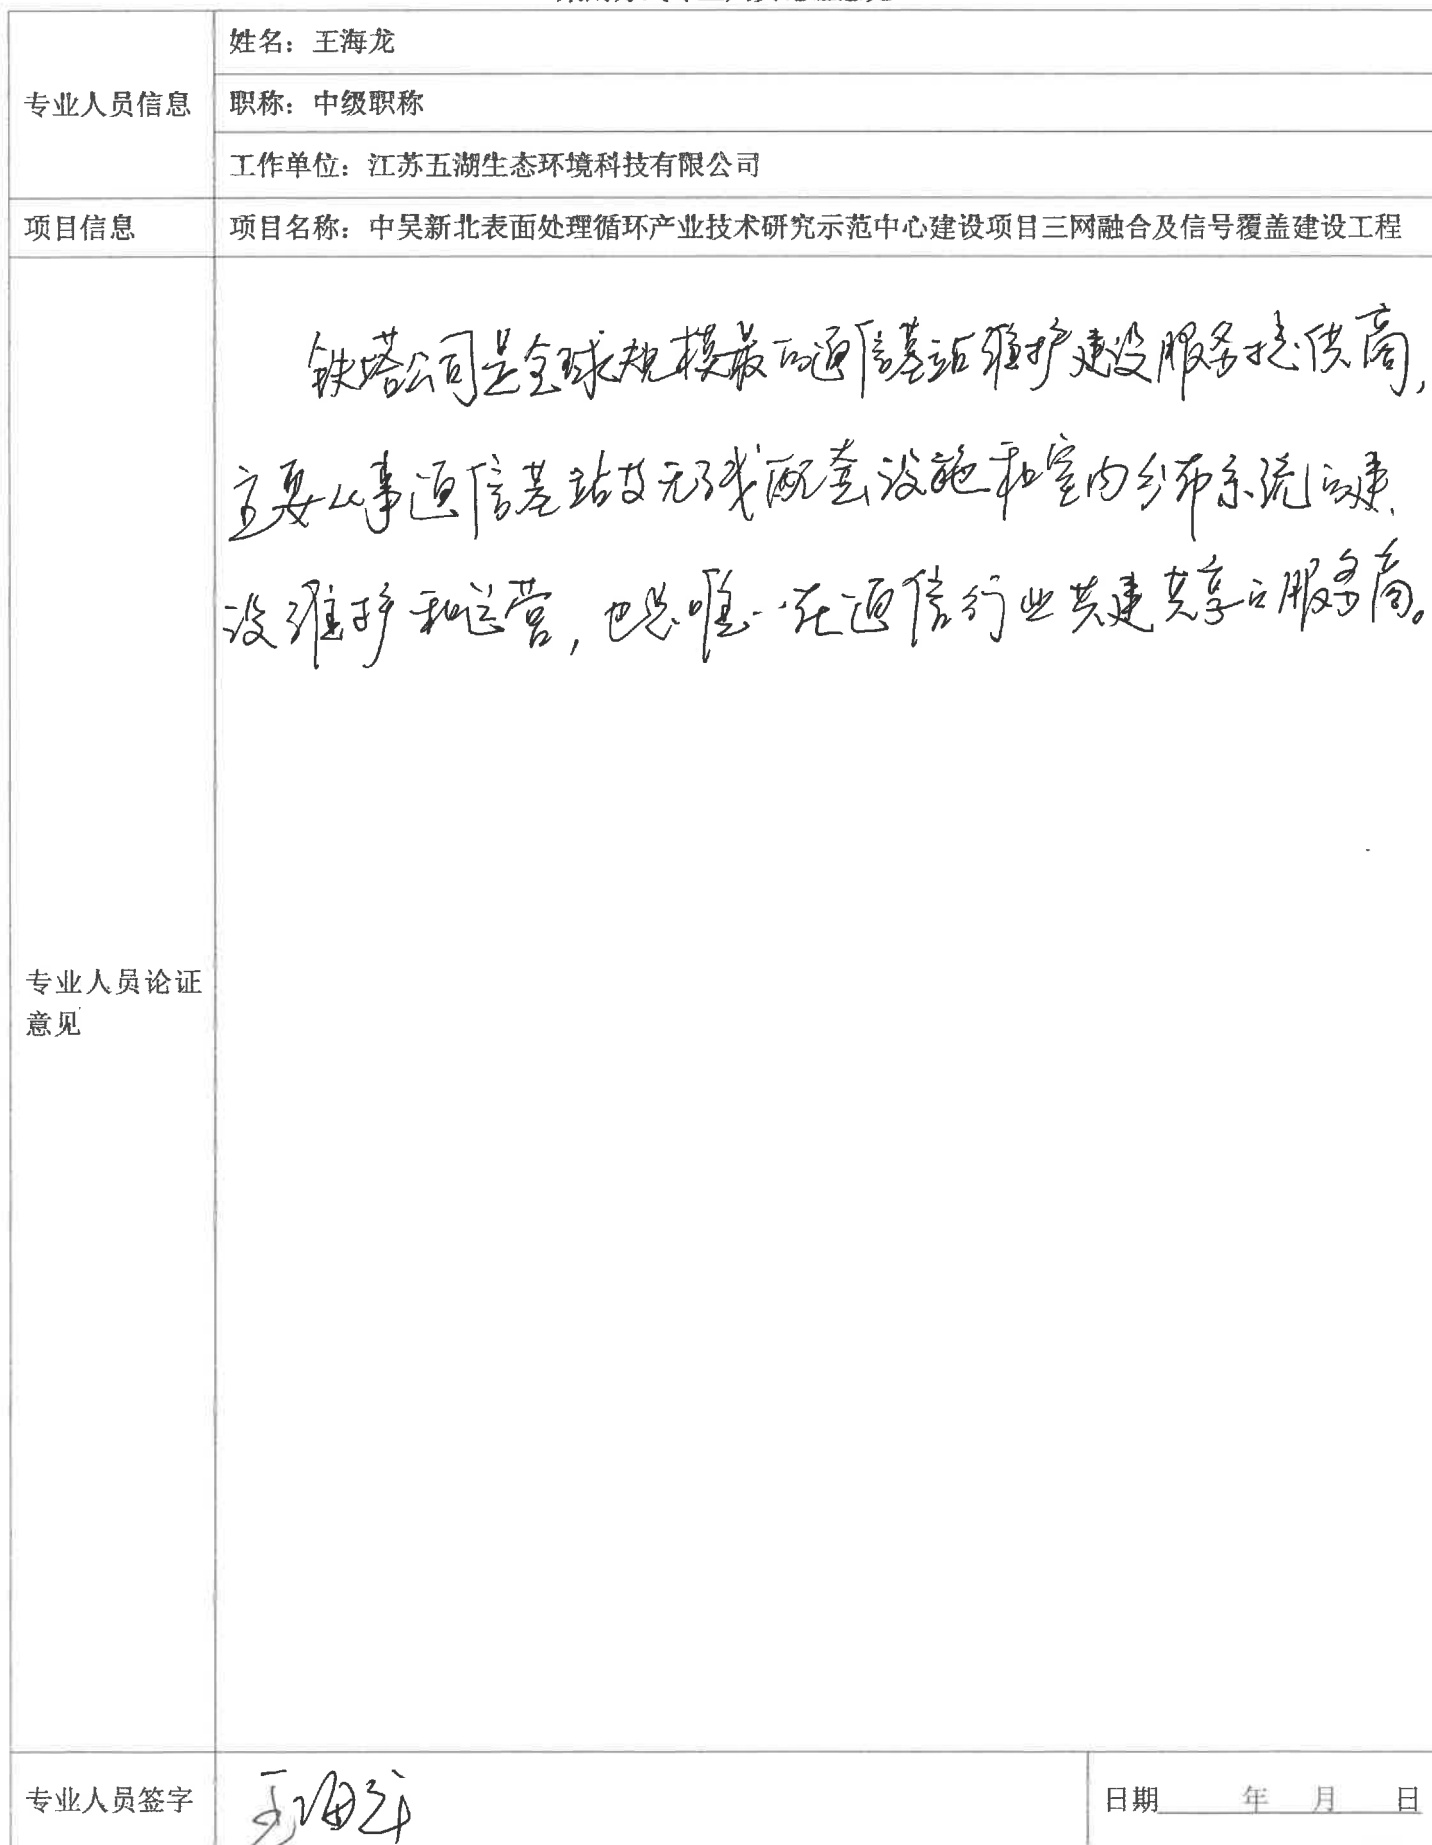 姓名：王海龙
专业人员信息
职称：中级职称
工作单位：江苏五湖生态环境科技有限公司
项目信息
项目名称：中吴新北表面处理循环产业技术研究示范中心建设项目三网融合及信号覆盖建设工程
铁塔公司是全球规模最的通信基站维护建设服务提供商，
主要从事通信基站及无线配套设施和室内分布系统的建
设维护和运营，也是唯一在通信行业共建共享的服务商。
专业人员论证
意见
专业人员签字
王海龙
日期 年 月 日